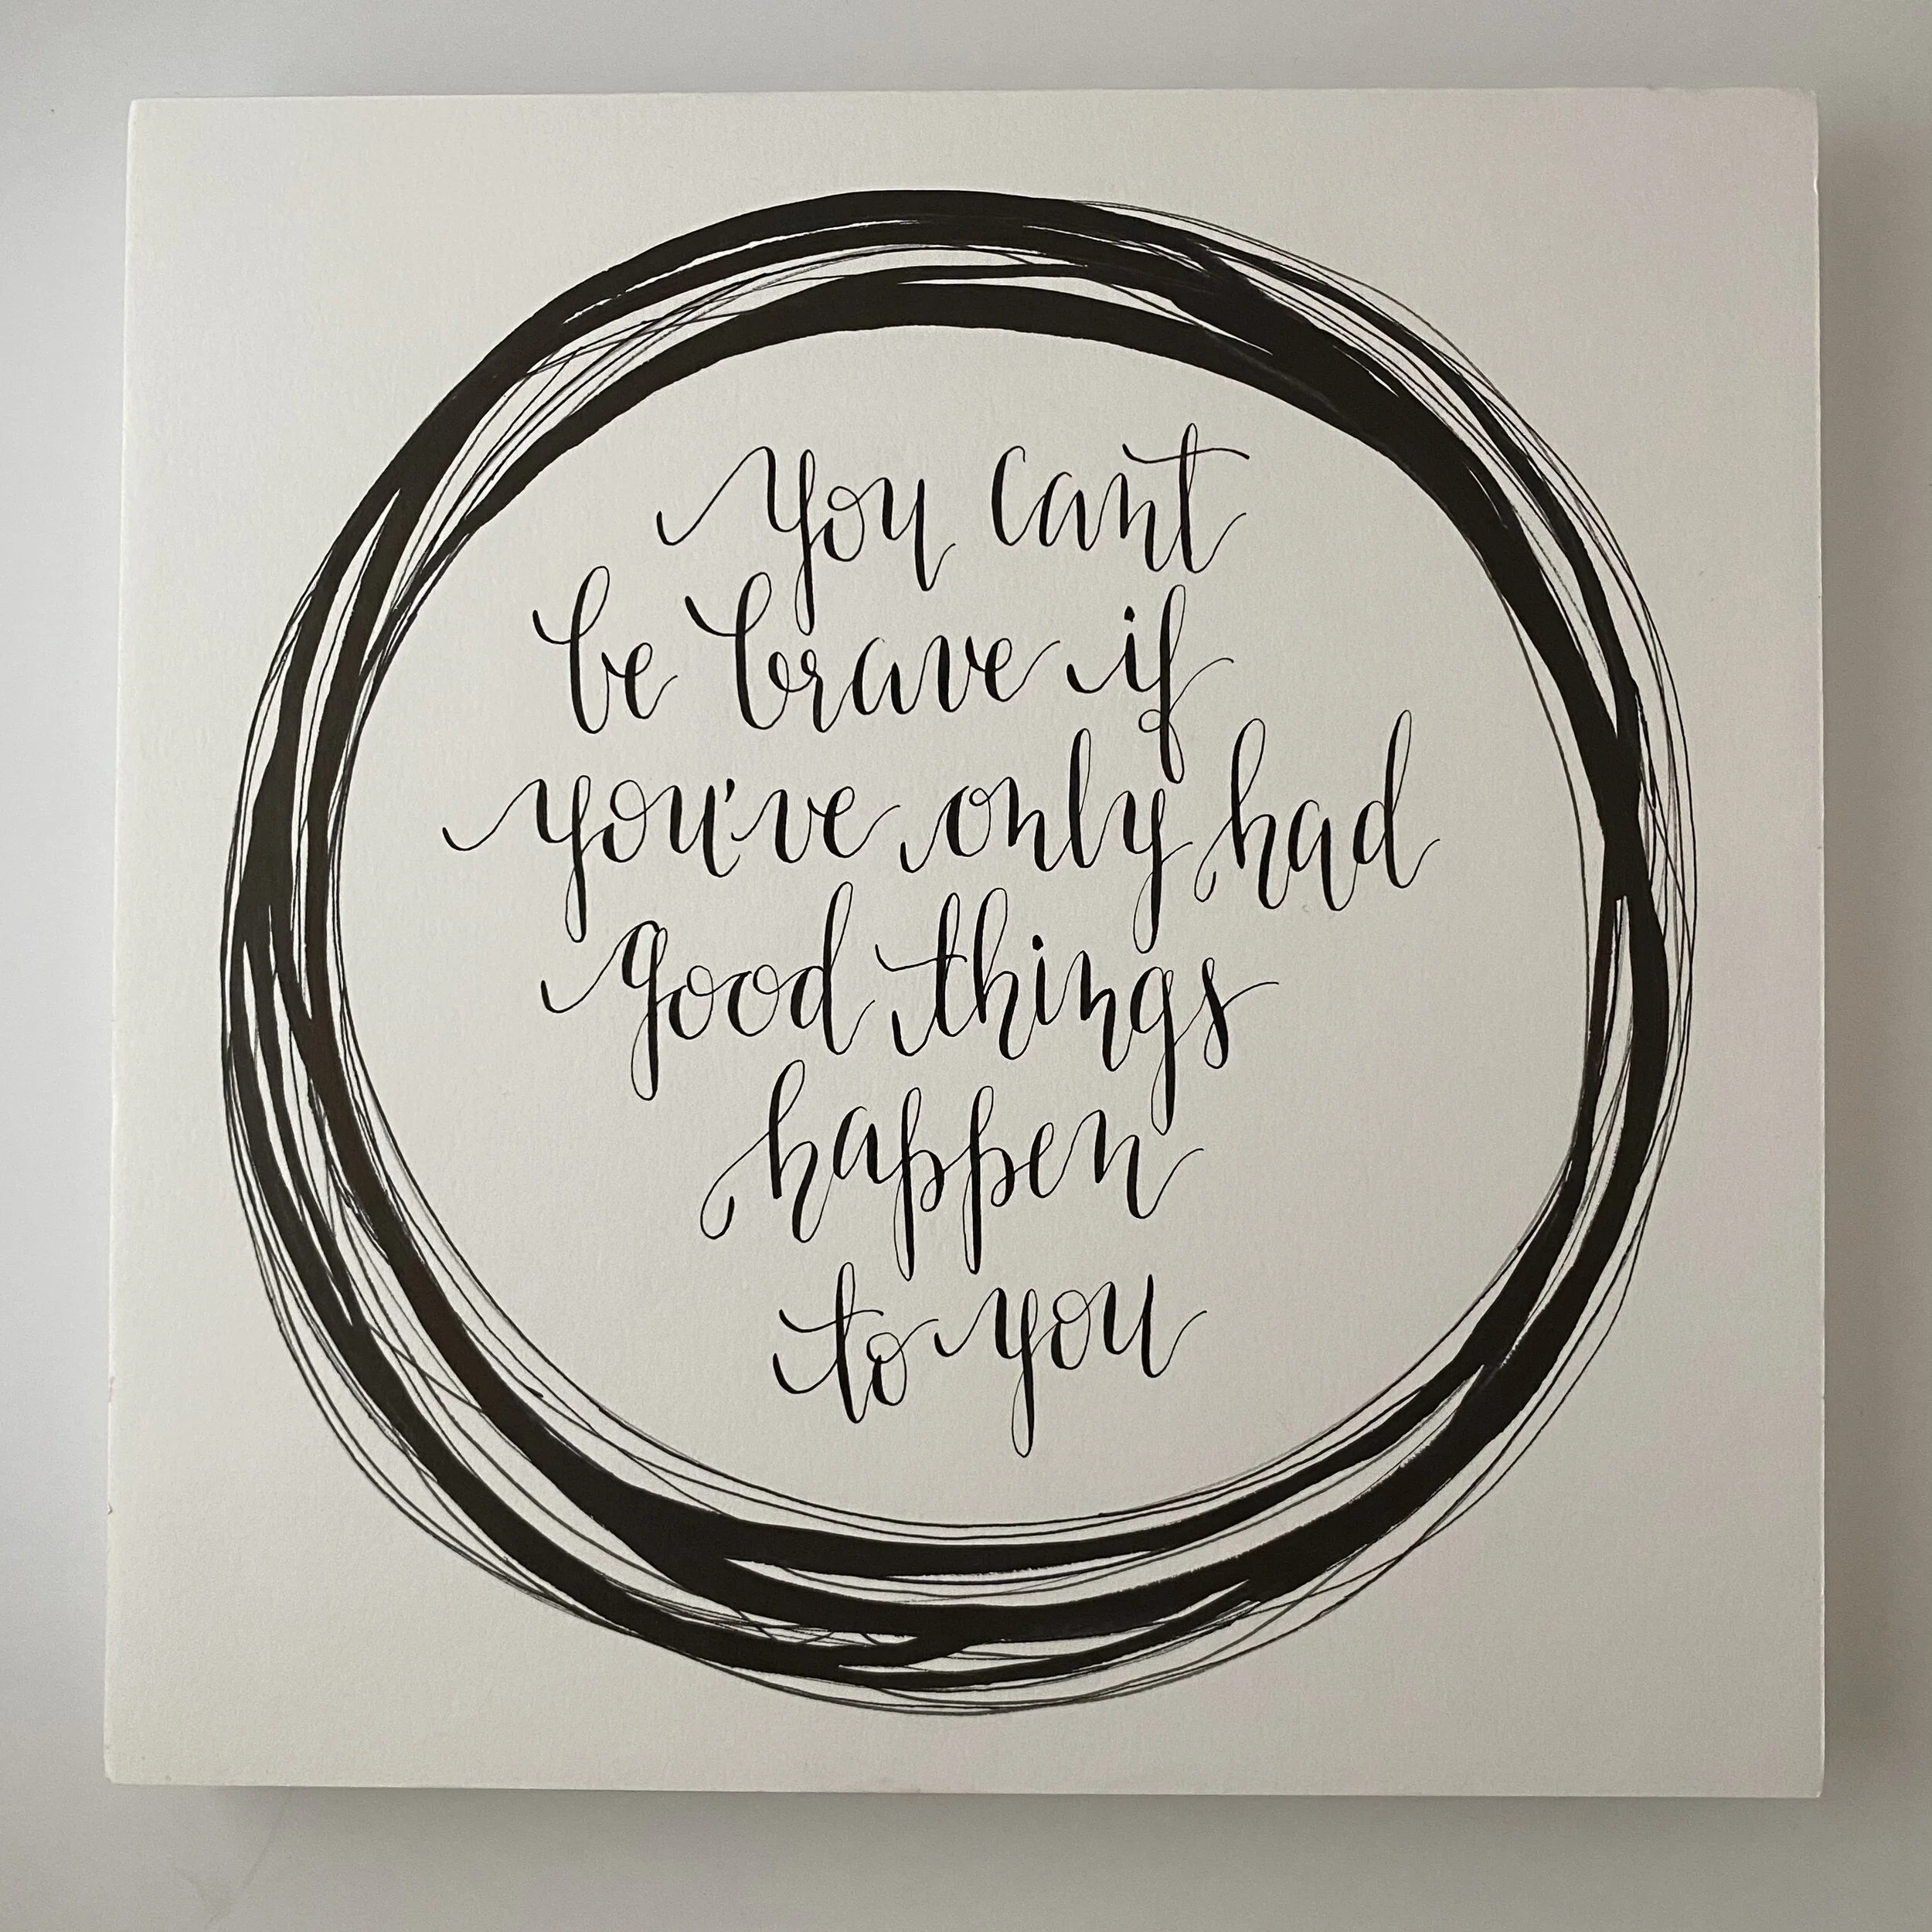 you cant
be brave if
you've only had
good things
happen
to you